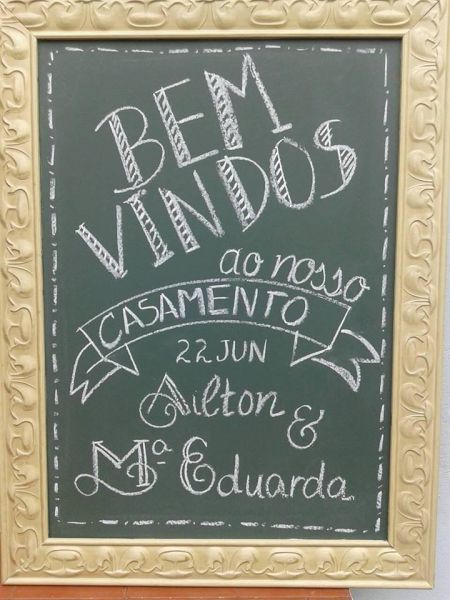 BEM
VINDOS
ao nosso
CASAMENTO
22 JUN
Ailton
&
Mª Eduarda